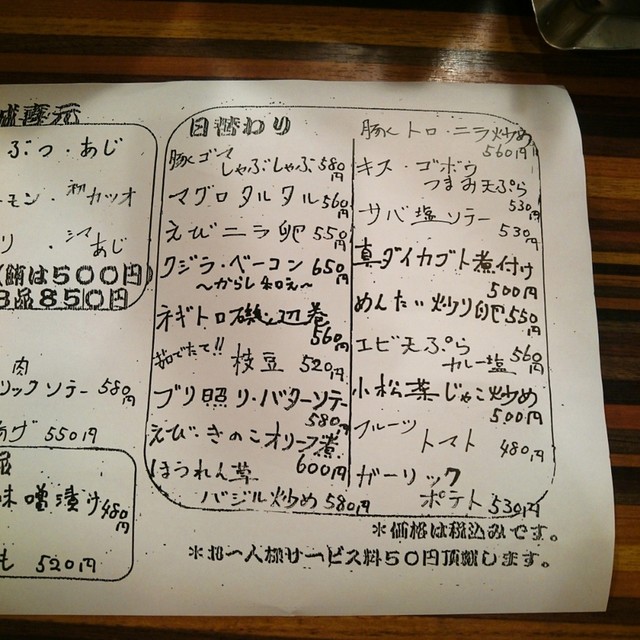 ぶつ・あじ
モン・初カツオ
リ・シマあじ
(鮪は500円)
3品850円
肉
リックソテー 580円
あげ 550円
味噌漬け 480円
も 520円
日替わり
豚ゴマ
しゃぶしゃぶ 580円
マグロタルタル 560円
えびニラ卵 550円
クジラ・ベーコン 650円
〜からし和え〜
ネギトロ磯辺巻
560円
茹でたて!! 枝豆 520円
ブリ照り・バターソテー
580円
えび・きのこオリーブ煮
600円
ほうれん草
バジル炒め 580円
豚トロ・ニラ炒め
560円
キス・ゴボウ
つまみ天ぷら
530円
サバ塩ソテー
530円
真ダイカブト煮付け
500円
めんたい炒り卵 550円
エビ天ぷら
カレー塩 560円
小松菜じゃこ炒め
500円
フルーツ
トマト 480円
ガーリック
ポテト 530円
*価格は税込みです。
*お一人様サービス料50円頂戴します。